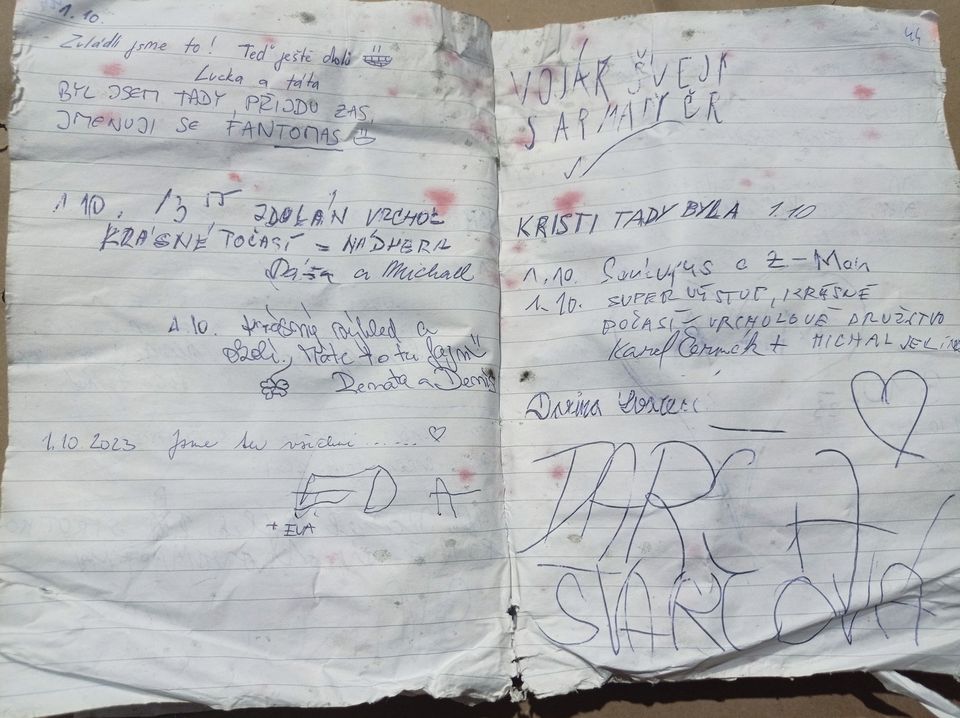 1.10.
Zvládli jsme to! Teď ještě dolů
Lucka a táta
BYL JSEM TADY, PŘIJDU ZAS,
JMENUJI SE FANTOMAS
1.10. 13 55 ZDOLÁN VRCHOL
KRÁSNÉ POČASÍ = NÁDHERA
Dáša a Michael
1.10. krásný výhled a
Máte to tu fajn"
Renata a Denis
1.10.2023 Jsme tu všichni ......
A
+ EVA
44
VOJÁK ŠVEJK
S ARMÁDY ČR
KRISTI TADY BYLA 1.10
1.10. a Z-Man
1.10. SUPER VÝSTUP, KRÁSNÉ
POČASÍ - VRCHOLOVÉ DRUŽSTVO
Karel Čermák + MICHAL JELÍNEK
Darina
ŠVARCOVÁ